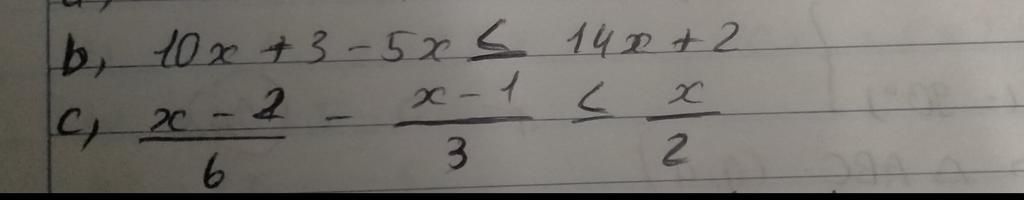 b, 10x + 3 - 5x ≤ 14x + 2
c, (x - 2)/6 - (x - 1)/3 ≤ x/2